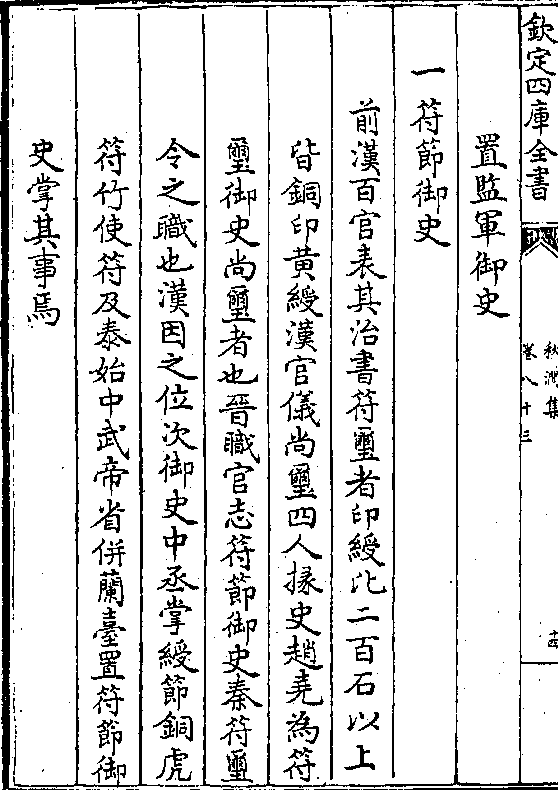 欽定四庫全書
秋澗集
卷八十三
十四
置監軍御史
一符節御史
前漢百官表其治書符璽者印綬比二百石以上
皆銅印黄綬漢官儀尚璽四人掾史趙堯為符
璽御史尚璽者也晉職官志符節御史秦符璽
令之職也漢因之位次御史中丞掌綬節銅虎
符竹使符及泰始中武帝省併蘭臺置符節御
史掌其事焉